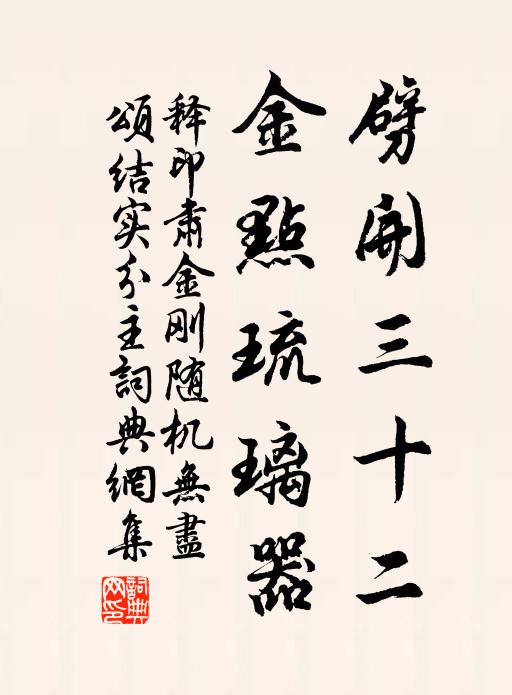 劈開三十二
金點琉璃器
释印肃金刚随机無盡
頌结实分主詞典網集
詞典網印